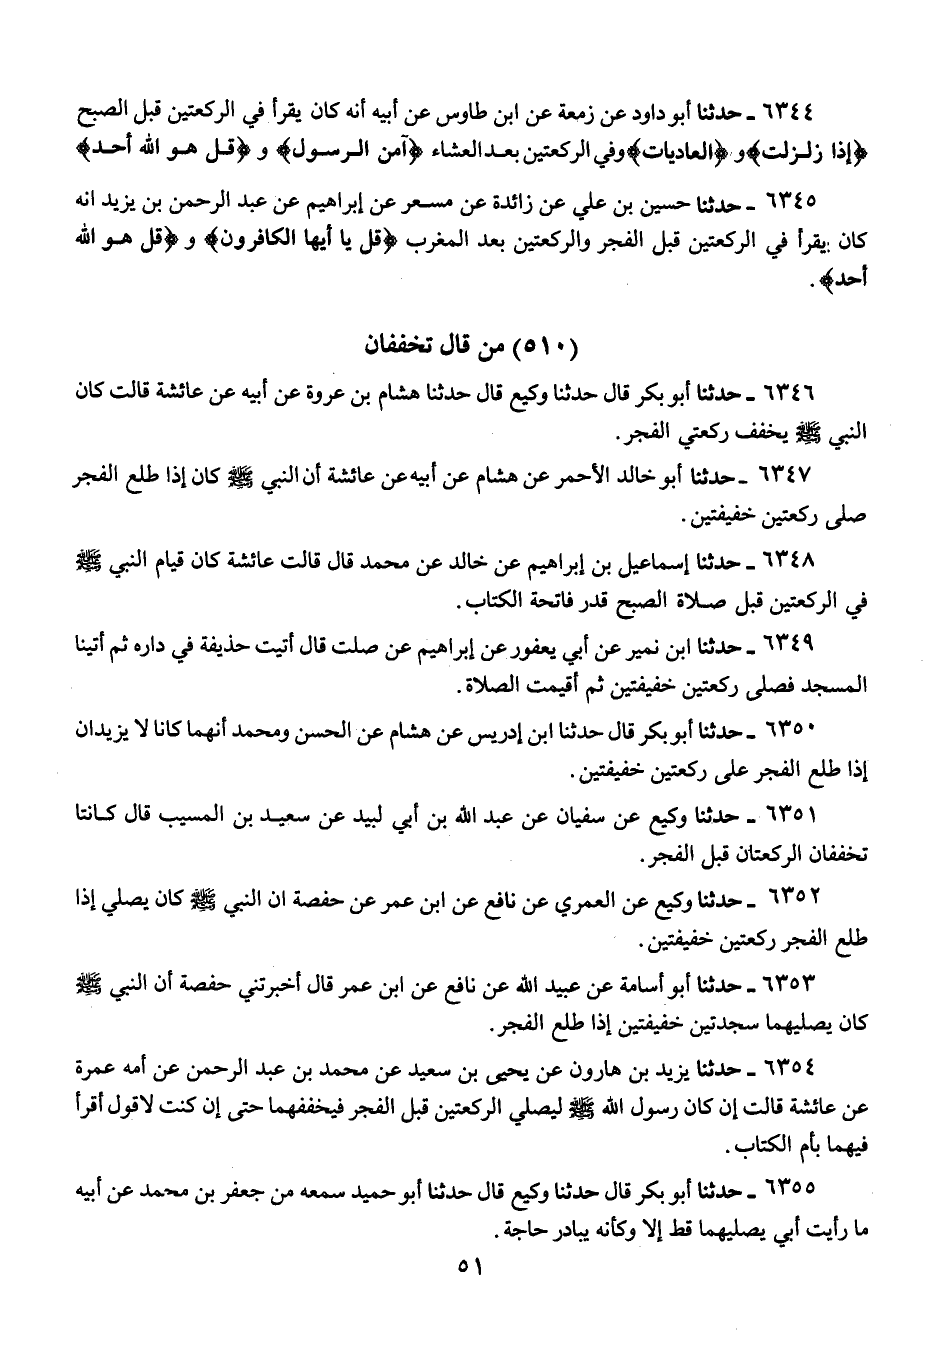 ٦٣٤٤ ـ حدثنا أبو داود عن زمعة عن ابن طاوس عن أبيه أنه كان يقرأ في الركعتين قبل الصبح
﴿إذا زلـزلت﴾ و ﴿العاديات﴾ وفي الركعتين بعد العشاء ﴿آمن الـرسول﴾ و ﴿قـل هـو الله أحـد﴾
٦٣٤٥ ـ حدثنا حسين بن علي عن زائدة عن مسعر عن إبراهيم عن عبد الرحمن بن يزيد انه
كان يقرأ في الركعتين قبل الفجر والركعتين بعد المغرب ﴿قل يا أيها الكافرون﴾ و ﴿قل هـو الله
أحد﴾ .
(٥١٠) من قال تخففان
٦٣٤٦ ـ حدثنا أبو بكر قال حدثنا وكيع قال حدثنا هشام بن عروة عن أبيه عن عائشة قالت كان
النبي ﷺ يخفف ركعتي الفجر.
٦٣٤٧ ـ حدثنا أبو خالد الأحمر عن هشام عن أبيه عن عائشة أن النبي ﷺ كان إذا طلع الفجر
صلى ركعتين خفيفتين.
٦٣٤٨ ـ حدثنا إسماعيل بن إبراهيم عن خالد عن محمد قال قالت عائشة كان قيام النبي ﷺ
في الركعتين قبل صـلاة الصبح قدر فاتحة الكتاب.
٦٣٤٩ ـ حدثنا ابن نمير عن أبي يعفور عن إبراهيم عن صلت قال أتيت حذيفة في داره ثم أتينا
المسجد فصلى ركعتين خفيفتين ثم أقيمت الصلاة.
٦٣٥٠ ـ حدثنا أبو بكر قال حدثنا ابن إدريس عن هشام عن الحسن ومحمد أنهما كانا لا يزيدان
إذا طلع الفجر على ركعتين خفيفتين.
٦٣٥١ ـ حدثنا وكيع عن سفيان عن عبد الله بن أبي لبيد عن سعيـد بن المسيب قال كـانتا
تخففان الركعتان قبل الفجر.
٦٣٥٢ ـ حدثنا وكيع عن العمري عن نافع عن ابن عمر عن حفصة ان النبي ﷺ كان يصلي إذا
طلع الفجر ركعتين خفيفتين.
٦٣٥٣ ـ حدثنا أبو أسامة عن عبيد الله عن نافع عن ابن عمر قال أخبرتني حفصة أن النبي ﷺ
كان يصليهما سجدتين خفيفتين إذا طلع الفجر.
٦٣٥٤ ـ حدثنا يزيد بن هارون عن يحيى بن سعيد عن محمد بن عبد الرحمن عن أمه عمرة
عن عائشة قالت إن كان رسول الله ﷺ ليصلي الركعتين قبل الفجر فيخففهما حتى إن كنت لاقول أقرأ
فيهما بأم الكتاب.
٦٣٥٥ ـ حدثنا أبو بكر قال حدثنا وكيع قال حدثنا أبو حميد سمعه من جعفر بن محمد عن أبيه
ما رأيت أبي يصليهما قط إلا وكأنه يبادر حاجة.
٥١